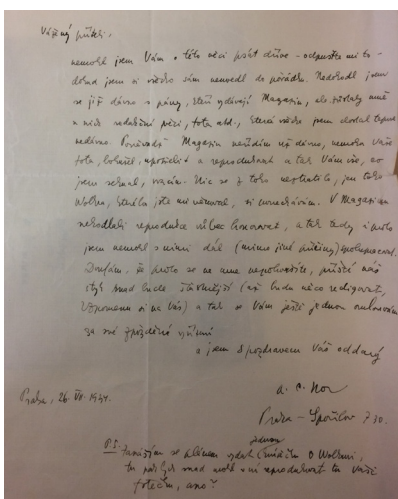 Vážený příteli,
nemohl jsem Vám o této věci psát dříve - odpusťte mi to -
dokud jsem si všecko sám neuvedl do pořádku. Nedohodl jsem
se již dávno s pány, kteří vydávají Magazin, ale zůstaly mně
u nich redakční věci, fota atd., které všecko jsem dostal teprve
nedávno. Poněvadž Magazin neřídím už dávno, nemohu Vaše
fota, bohužel, upotřebit a reprodukovat a tak Vám vše, co
jsem sehnal, vracím. Nic se z toho neztratilo, jen toho
Wolkra, kterého jste mi věnoval, si ponechávám. V Magazinu
nehodlali reprodukce vůbec honorovat, a tak tedy i proto
jsem nemohl s nimi dál (mimo jiné příčiny) spolupracovat.
Doufám, že proto se na mne nepohněváte, příště náš
styk snad bude šťastnější (až budu něco redigovat,
vzpomenu si na Vás) a tak se Vám ještě jednou omlouvám
za své zpožděné
a jsem s pozdravem Váš oddaný
A. C. Nor
Praha - Spořilov 730.
Praha, 26. 1934.
P.S. Zamýšlím se vydat jednou o Wolkrovi,
tu bych snad mohl v ní reprodukovat tu Vaši
ano?